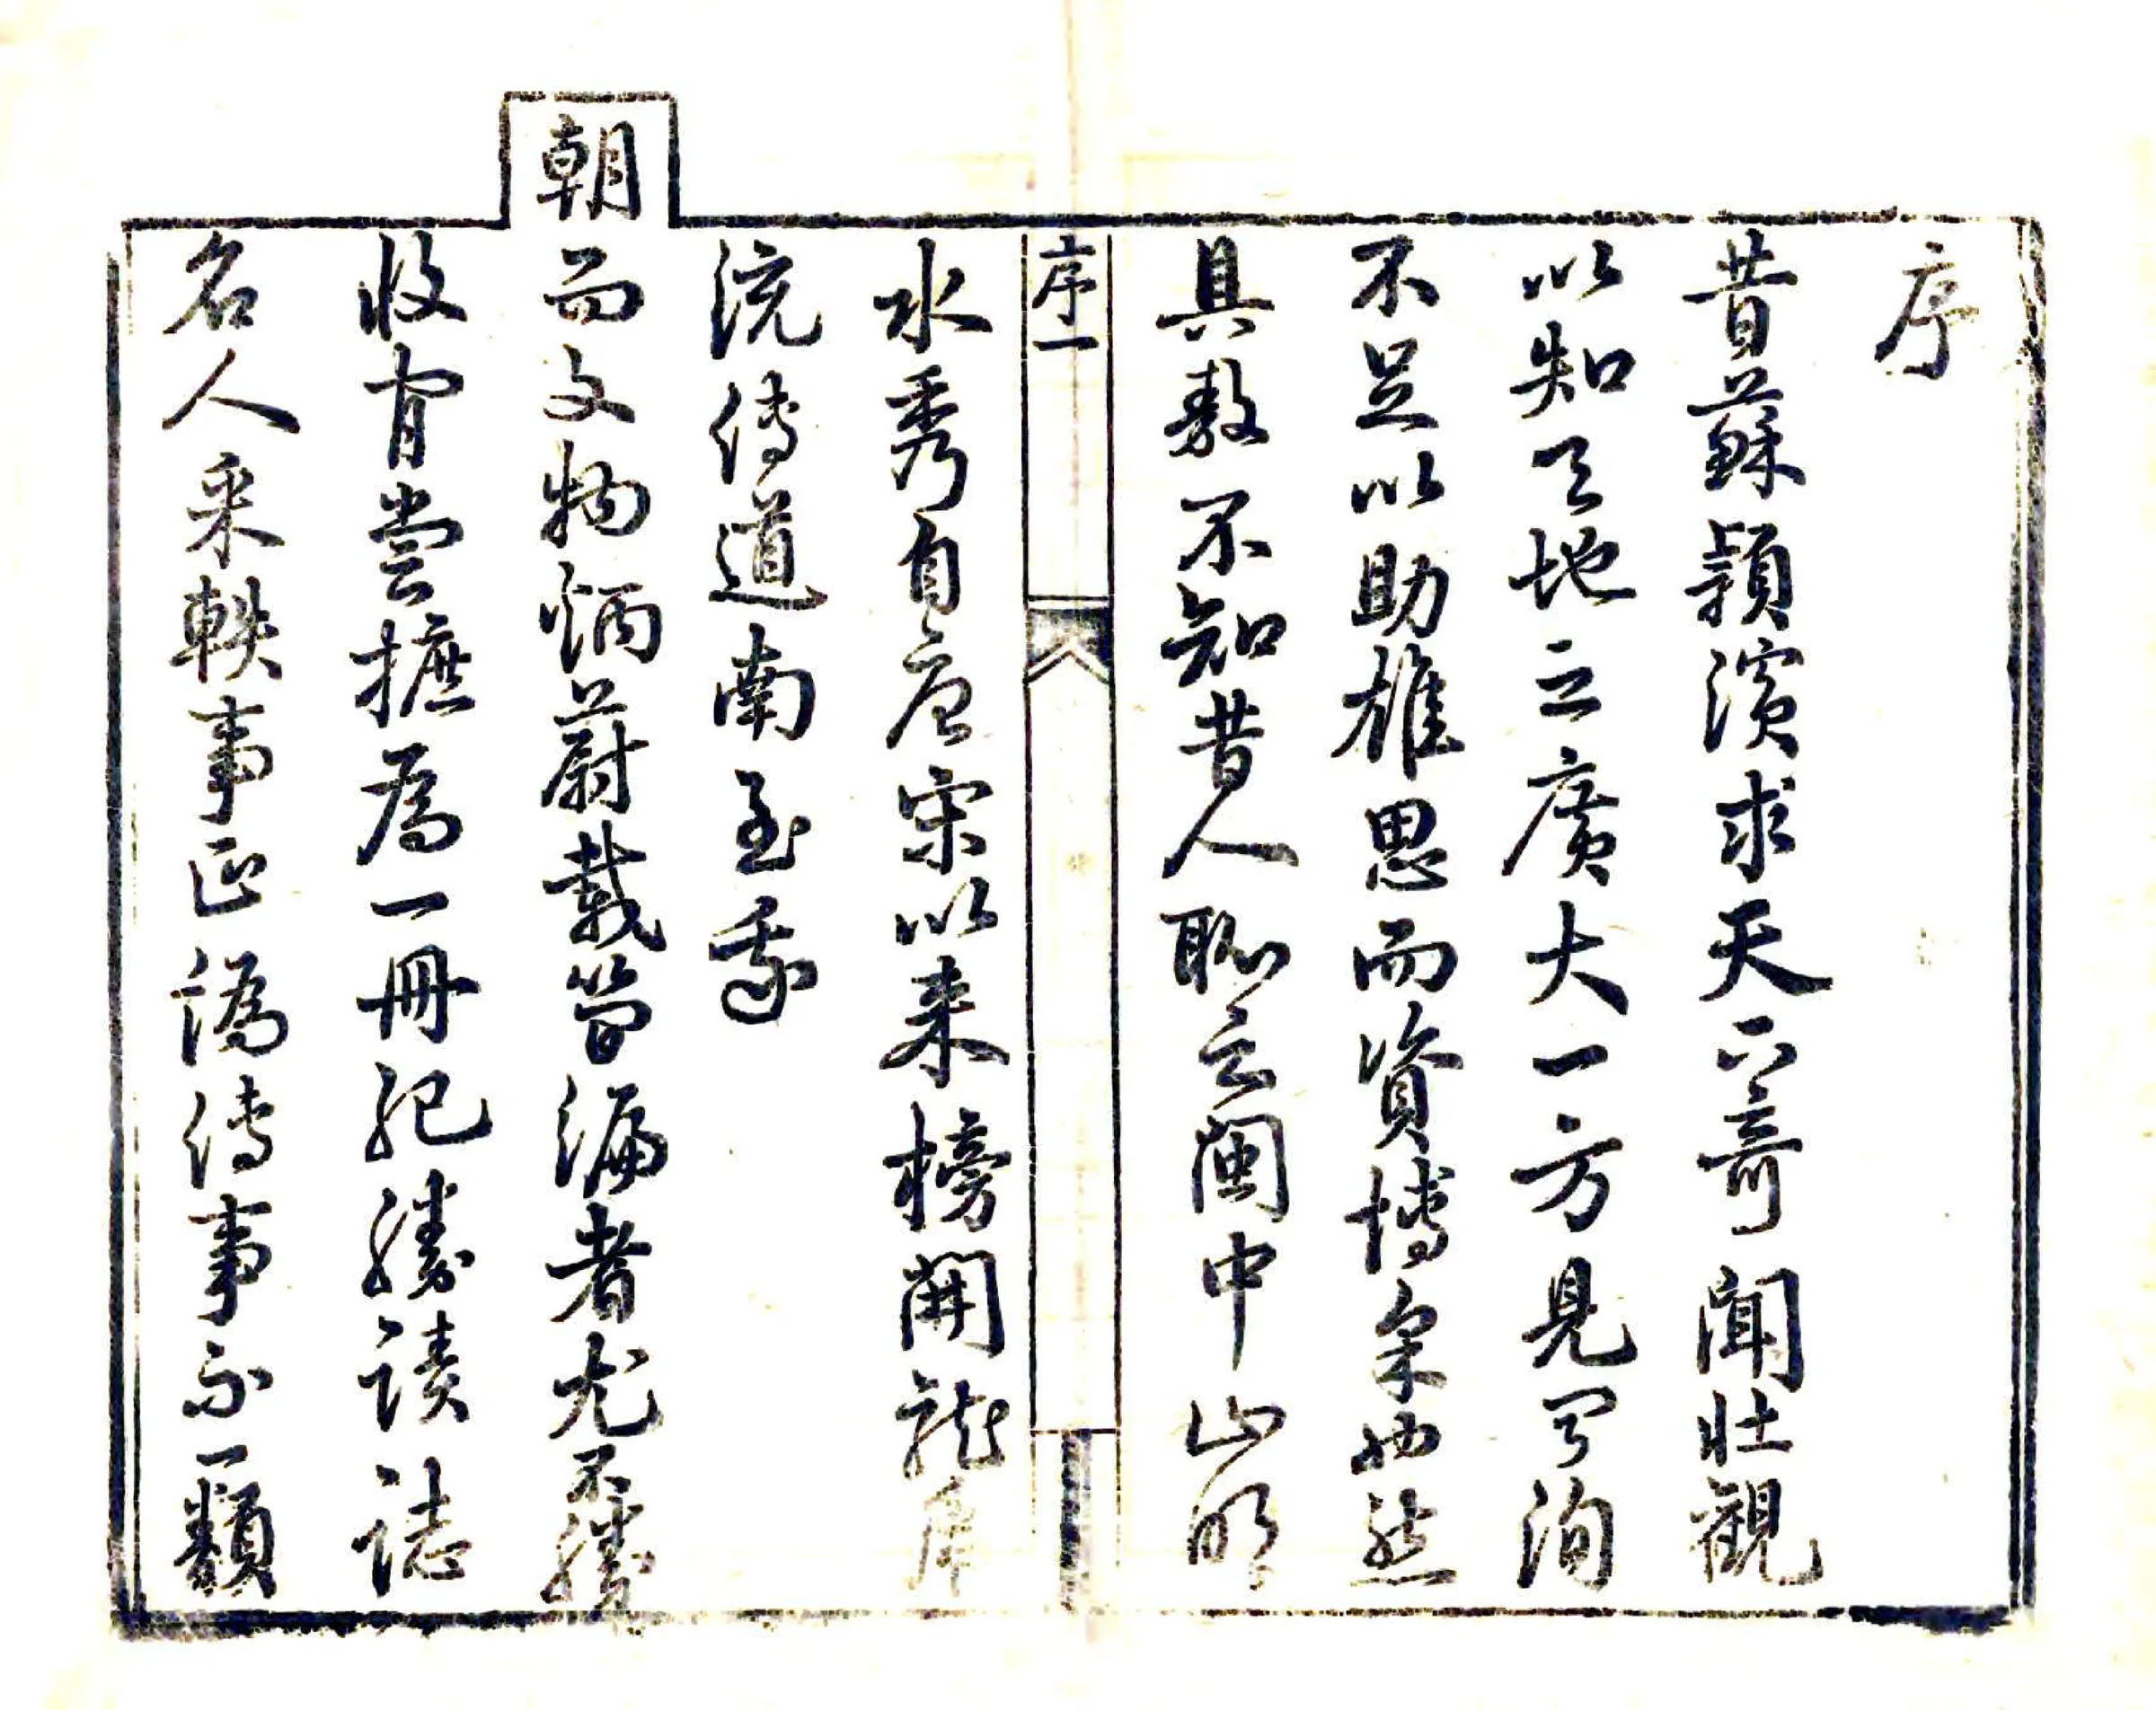 序
昔蘇穎濱求天下奇聞壯觀
以知天地之廣大一方見聞洵
不足以助雄思而資博也然
具敖不知昔人耻云閩中山明
序一
水秀自唐宋以来榜開龍虎
流傳道南至我
朝而文物炳蔚載簡編者尤不勝
收嘗摭為一冊紀勝讀誌
名人采軼事正譌傳事不一類